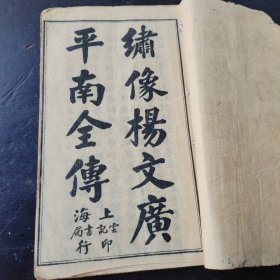 繡像楊文廣
平南全傳
上雲記印
海書局行